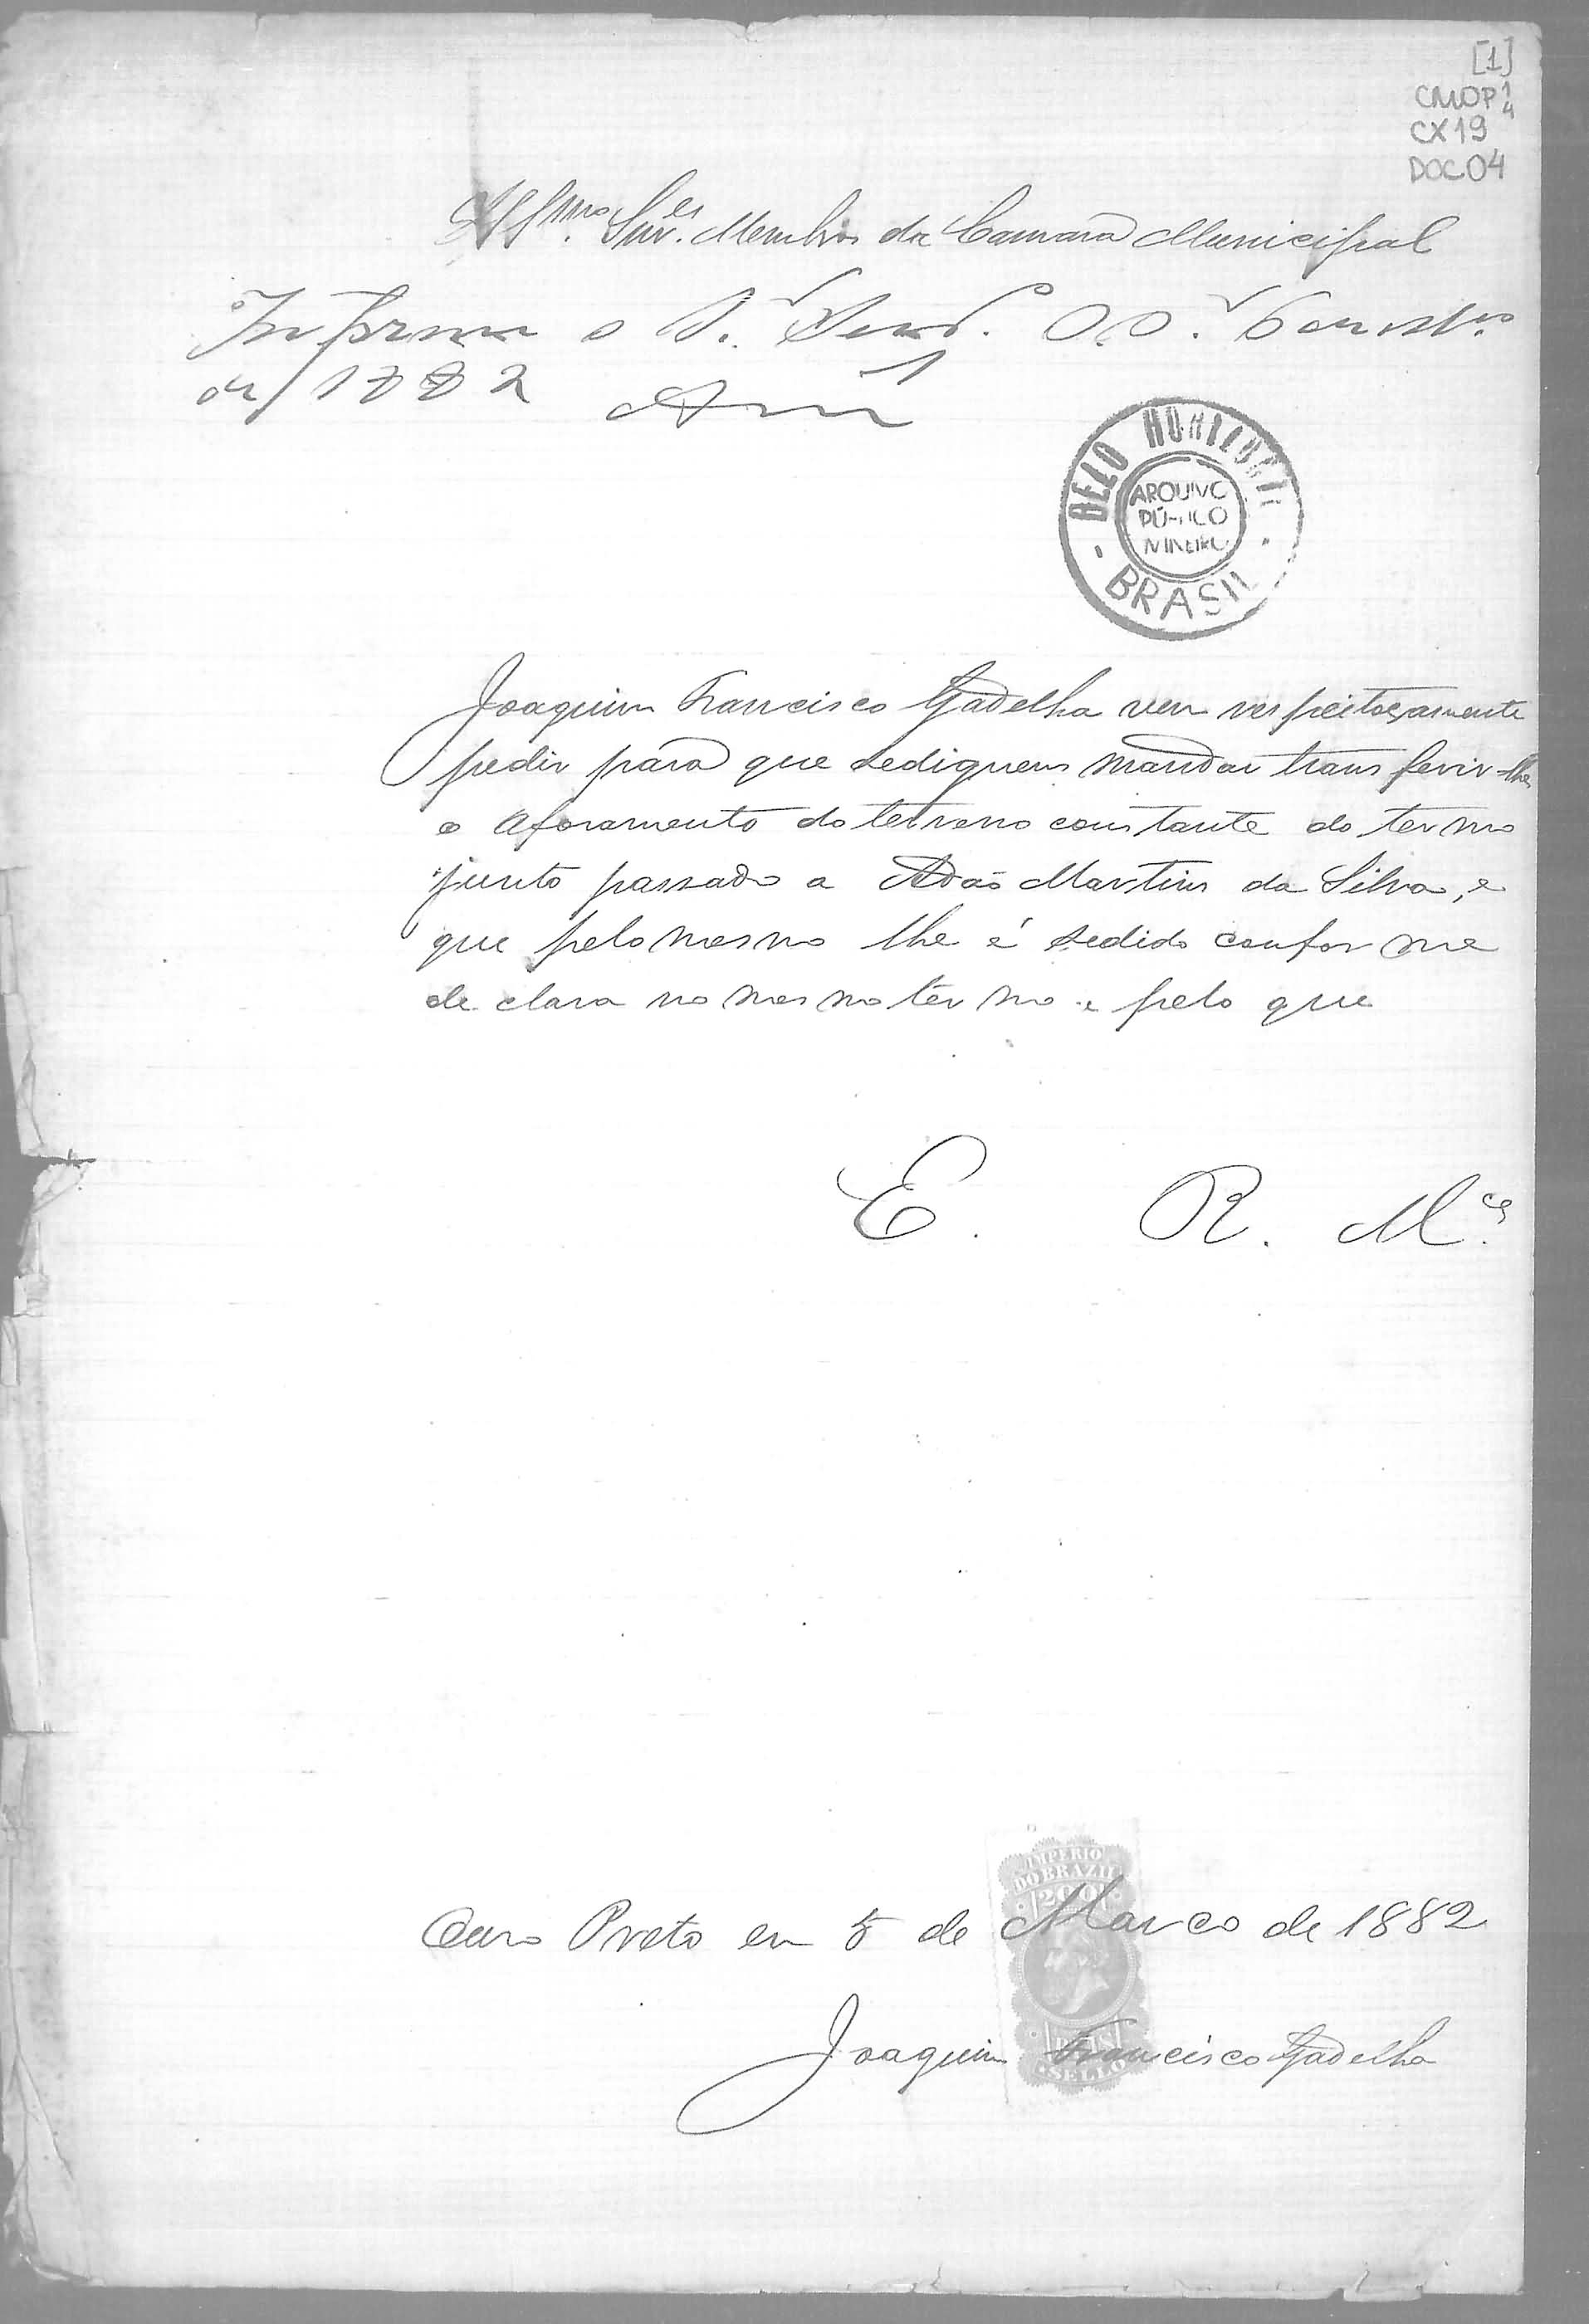 [1]
CMOP 1
4
CX19
DOC04
Ill.mos Snr.es Membros da Camara Municipal
Informe o S.r O.P. de
de 1882
BELO HORIZONTE
ARQUIVO
PÚBLICO
MINEIRO
BRASIL
Joaquim Francisco Gadelha vem respeitoçamente
pedir para que sediguem mandar transferir-lhe
o aforamento do terreno constante do termo
junto passado a Adão Martins da Silva, e
que pelo mesmo lhe é sedido conforme
declara no mesmo termo e pelo que
E. R. M.ce
IMPERIO
DO BRAZIL
200
Ouro Preto em 5 de Março de 1882
Joaquim Francisco Gadelha
REIS
SELLO